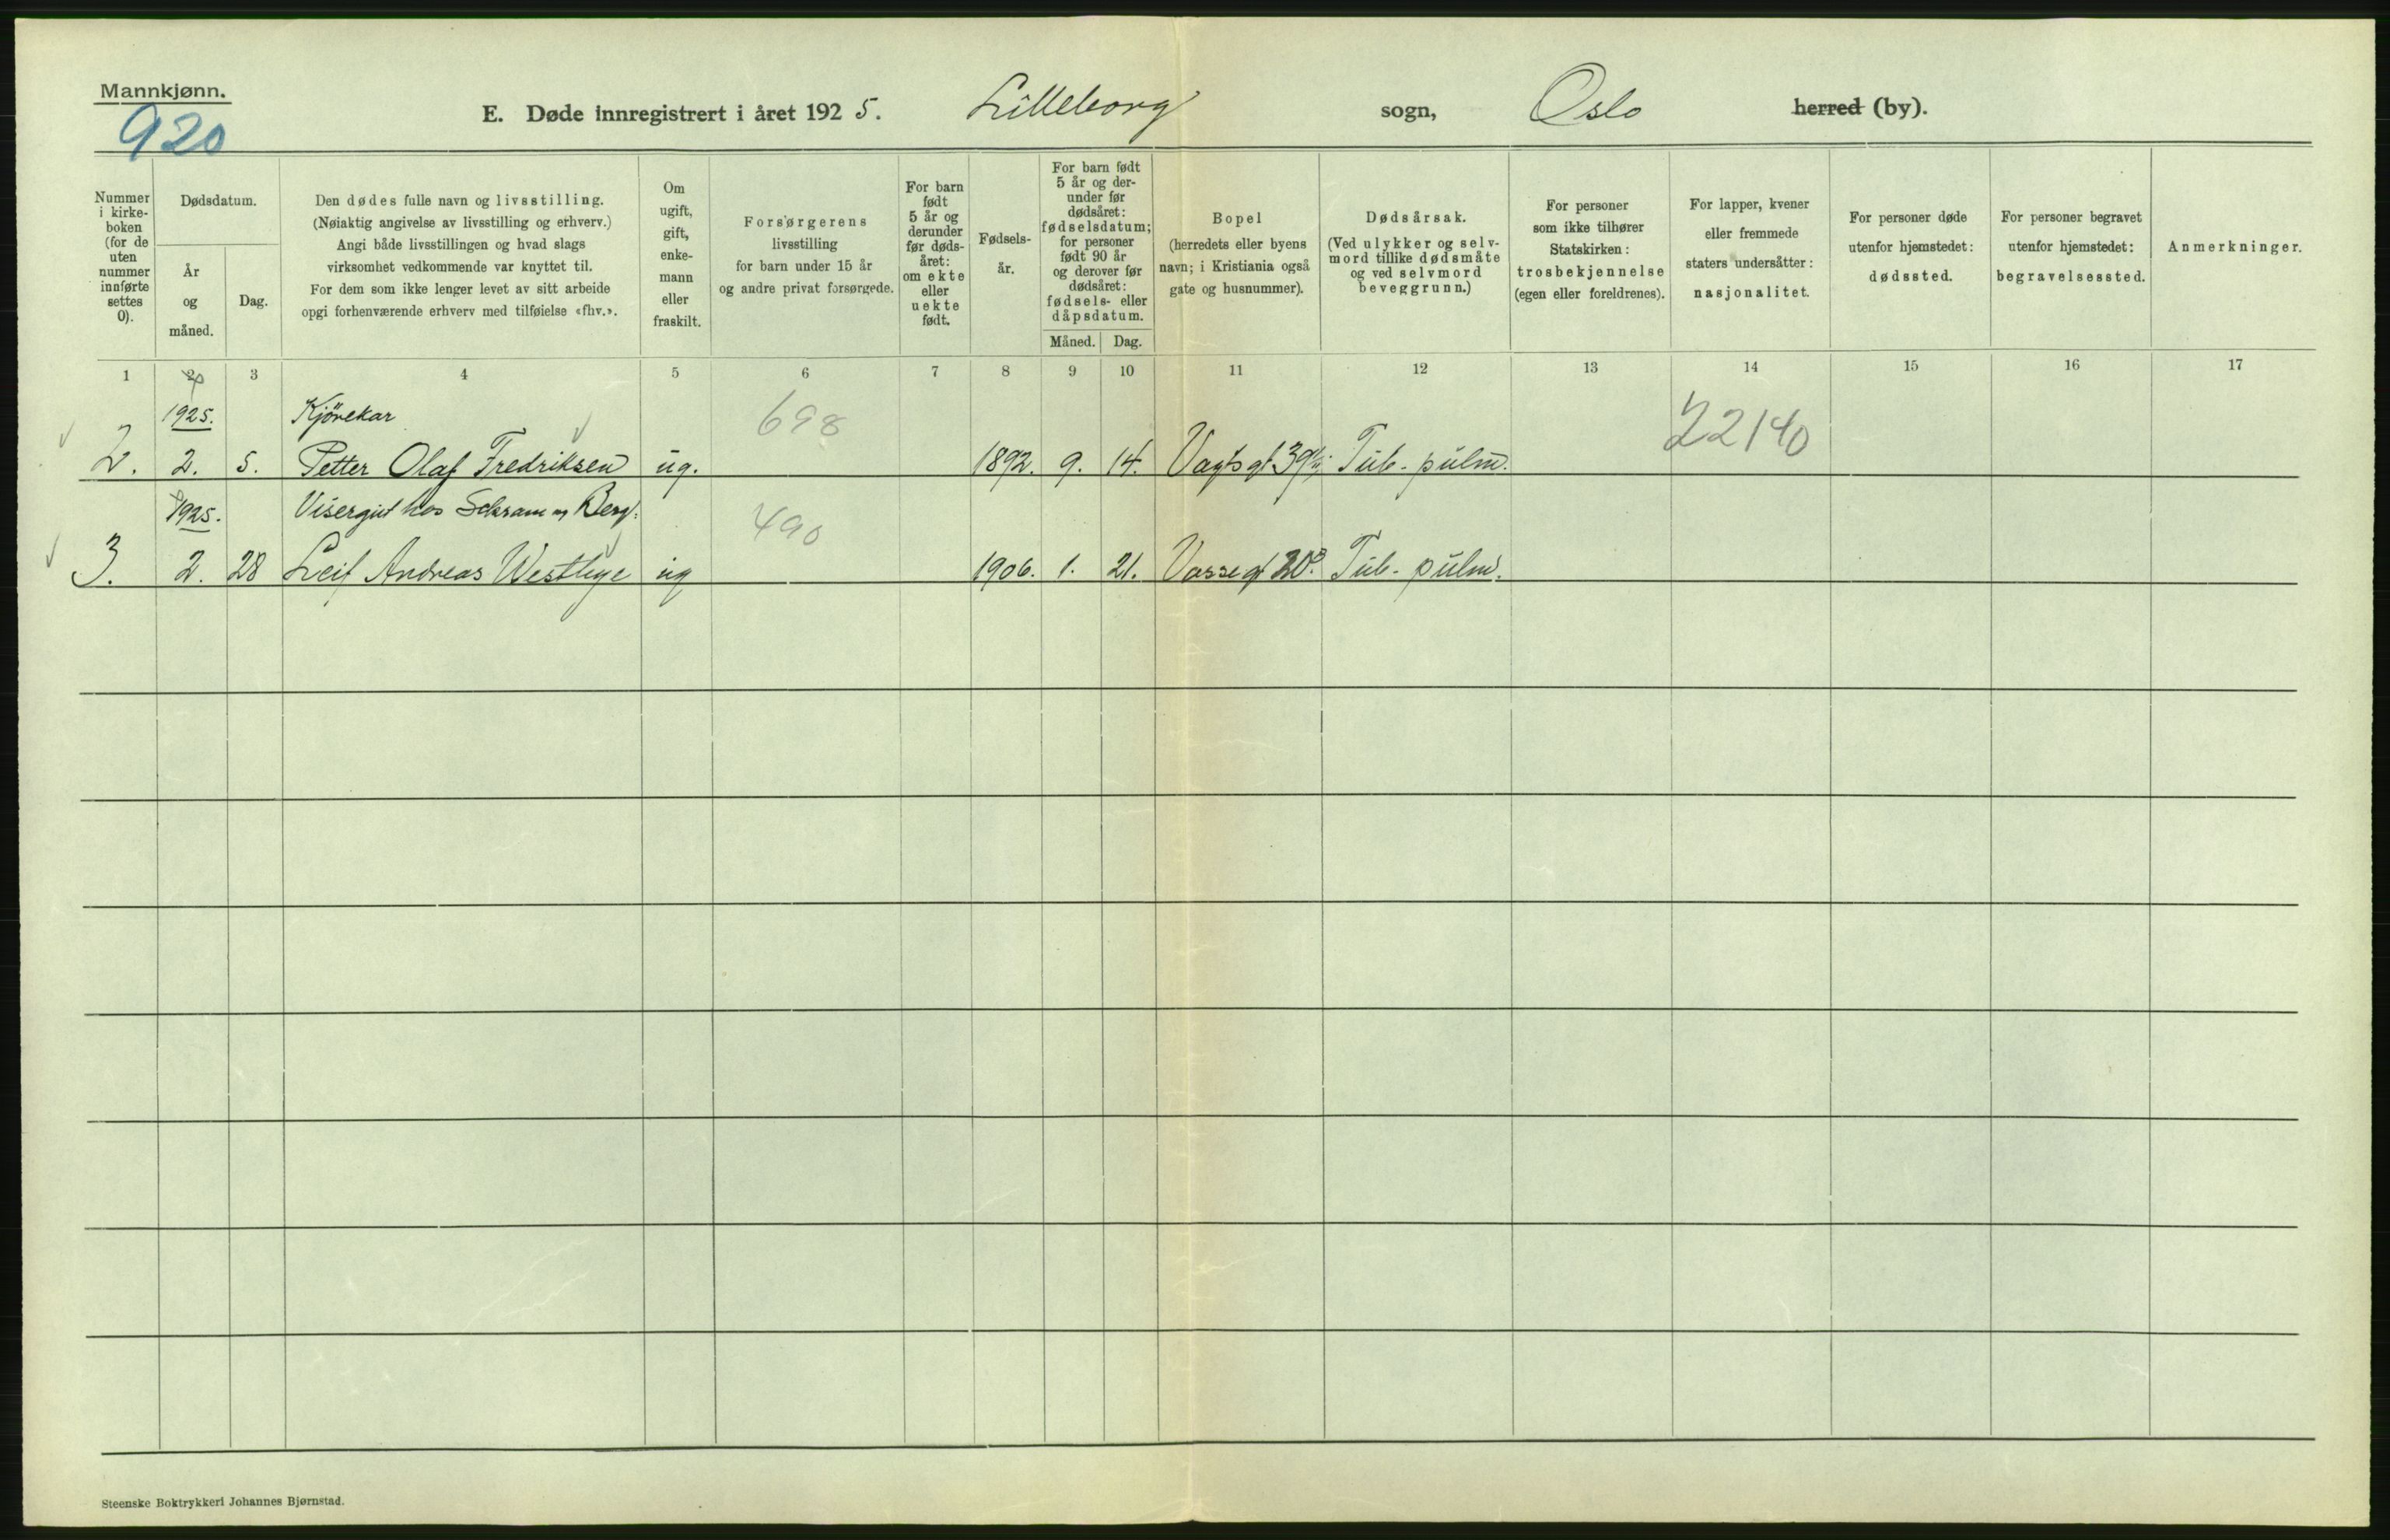 Mannkjønn.
920
E. Døde innregistrert i året 1925. Lilleborg sogn, Oslo herred (by).
Nummer i kirke-boken (for de uten nummer innførte settes 0).
Dødsdatum.
År og måned.
Dag.
Den dødes fulle navn og livsstilling.
(Nøiaktig angivelse av livsstilling og erhverv.)
Angi både livsstillingen og hvad slags
virksomhet vedkommende var knyttet til.
For dem som ikke lenger levet av sitt arbeide
opgi forhenværende erhverv med tilføielse «fhv.».
Om ugift, gift, enke-mann eller fraskilt.
Forsørgerens
livsstilling
for barn under 15 år
og andre privat forsørgede.
For barn født 5 år og derunder før døds-året: om ekte eller uekte født.
Fødsels-år.
For barn født 5 år og der-under før dødsåret: fødselsdatum; for personer født 90 år og derover før dødsåret: fødsels- eller dåpsdatum.
Måned. Dag.
Bopel
(herredets eller byens
navn; i Kristiania også
gate og husnummer).
Dødsårsak.
(Ved ulykker og selv-
mord tillike dødsmåte
og ved selvmord
beveggrunn.)
For personer
som ikke tilhører
Statskirken:
trosbekjennelse
(egen eller foreldrenes).
For lapper, kvener
eller fremmede
staters undersåtter:
nasjonalitet.
For personer døde
utenfor hjemstedet:
dødssted.
For personer begravet
utenfor hjemstedet:
begravelsessted.
Anmerkninger.
1 2 3 4 5 6 7 8 9 10 11 12 13 14 15 16 17
1925. Kjörekar 698 22140
2. 2. 5. Petter Olaf Fredriksen ug. 1892. 9. 14. Vogtsgt 39 Tub. pulm.
1925. Visergut hos Schram og Berg. 490
3. 2. 28 Leif Andreas Westlye ug 1906. 1. 21. Vossegt Tub. pulm.
Steenske Boktrykkeri Johannes Bjørnstad.